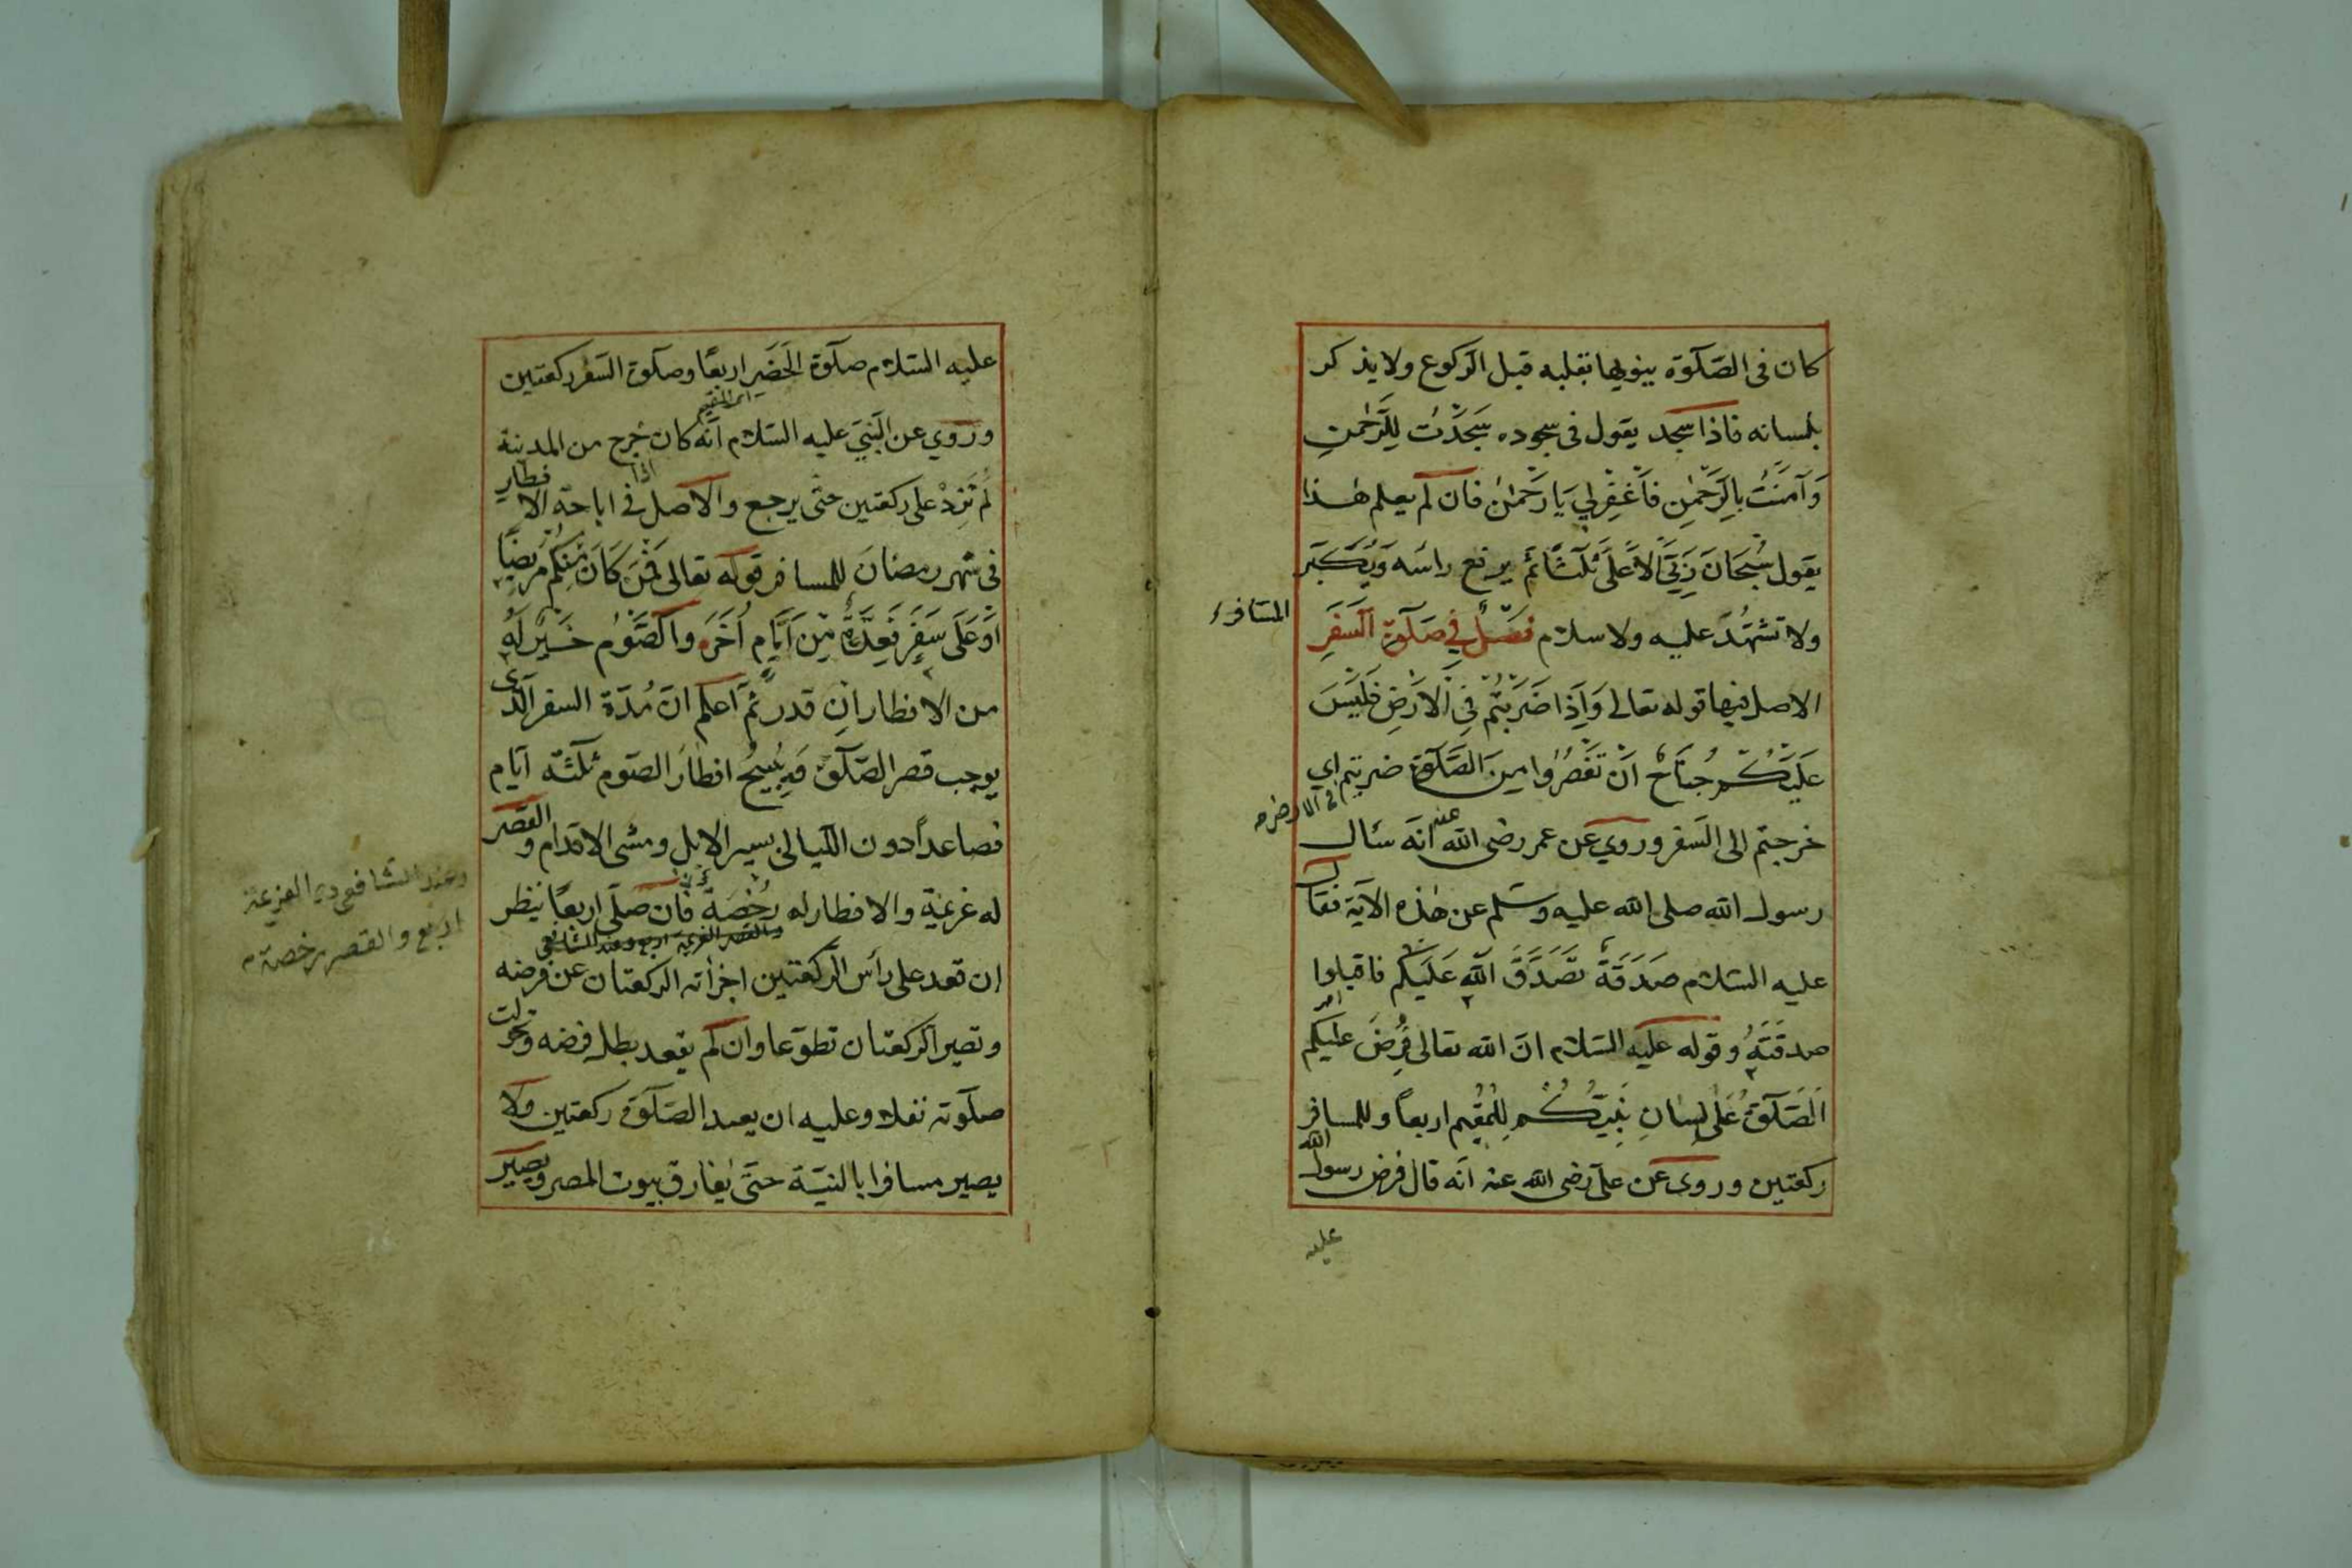 كان فى الصّلوة ينويها بقلبه قبل الركوع ولا يذكر
بلسانه فاذا سجد يقول فى سجوده سَجَدْتُ لِلرَّحْمٰنِ
وَآمَنْتُ بِالرَّحْمٰنِ فَاغْفِرْلِي يَا رَحْمٰنُ فان لم يعلم هٰذا
يقول سُبْحَانَ رَبِّيَ الْاَعْلَى ثَلٰثًا ثم يرفع رأسه وَيُكَبِّر
ولا تشهّد عليه ولا سلام فَصْلٌ فِي صَلٰوةِ السَّفَرِ
المسافر
الاصل فيها قوله تعالى وَاِذَا ضَرَبْتُمْ فِي الْاَرْضِ فَلَيْسَ
عَلَيْكُمْ جُنَاحٌ اَنْ تَقْصُرُوا مِنَ الصَّلٰوةِ ضربتم اي
فى الارض
خرجتم الى السفر وروي عن عمر رضى الله عنه انّه سئال
رسول الله صلى الله عليه وسلم عن هٰذه الآية فقال
عليه السّلام صَدَقَةٌ تَصَدَّقَ اللّٰه عَلَيْكُم فاقبلوا
صدقَتَهُ وقوله عليه السّلام انّ الله تعالى فَرَضَ عليكم
الصَّلٰوةَ عَلٰى لِسَانِ نَبِيِّكُمْ لِلْمُقِيم اربعاً وللمسافر
ركعتين وروى عن علىّ رضى الله عنه انّه قال فرض رسول الله
عليه
عليه السّلام صلٰوة الحَضَرِ اربعًا وصلٰوة السّفر ركعتين
وروي عن النّبيّ عليه السّلام انّه كان اذا خرج من المدينة
لم تَزِدْ على ركعتين حتّى يرجع والاصل فى اباحة الافطار
فى شهر رمضانَ للمسافر قوله تعالى فَمَنْ كَانَ مِنْكُمْ مَرِيضًا
اَوْ عَلَى سَفَرٍ فَعِدَّةٌ مِنْ اَيَّامٍ اُخَرَ والصَّوْم خَيْرٌ لَهُ
من الافطار انِ قدر ثمّ اعلم انّ مُدّة السفر الّذى
يوجب قصر الصّلٰوة وَيُبِيحُ افطارَ الصّوم ثلثة ايّام
فصاعداً دون اللّيالى بسير الابل ومشى الاقدام والقصر
له عزيمة والافطار له رُخْصَة فان صلّى اربعًا ينظر
وعند الشافعى العزيمة
اربع والقصر رخصة
ان قعد على رأس الركعتين اجزأته الركعتان عن فرضه
وتصير الركعتان تطوّعا وان لم يقعد بطل فرضه وتحولت
صلٰوته نفلا وعليه ان يعيد الصّلٰوة ركعتين ولا
يصير مسافرا بالنيّة حتّى يفارق بيوت المصر ويصير